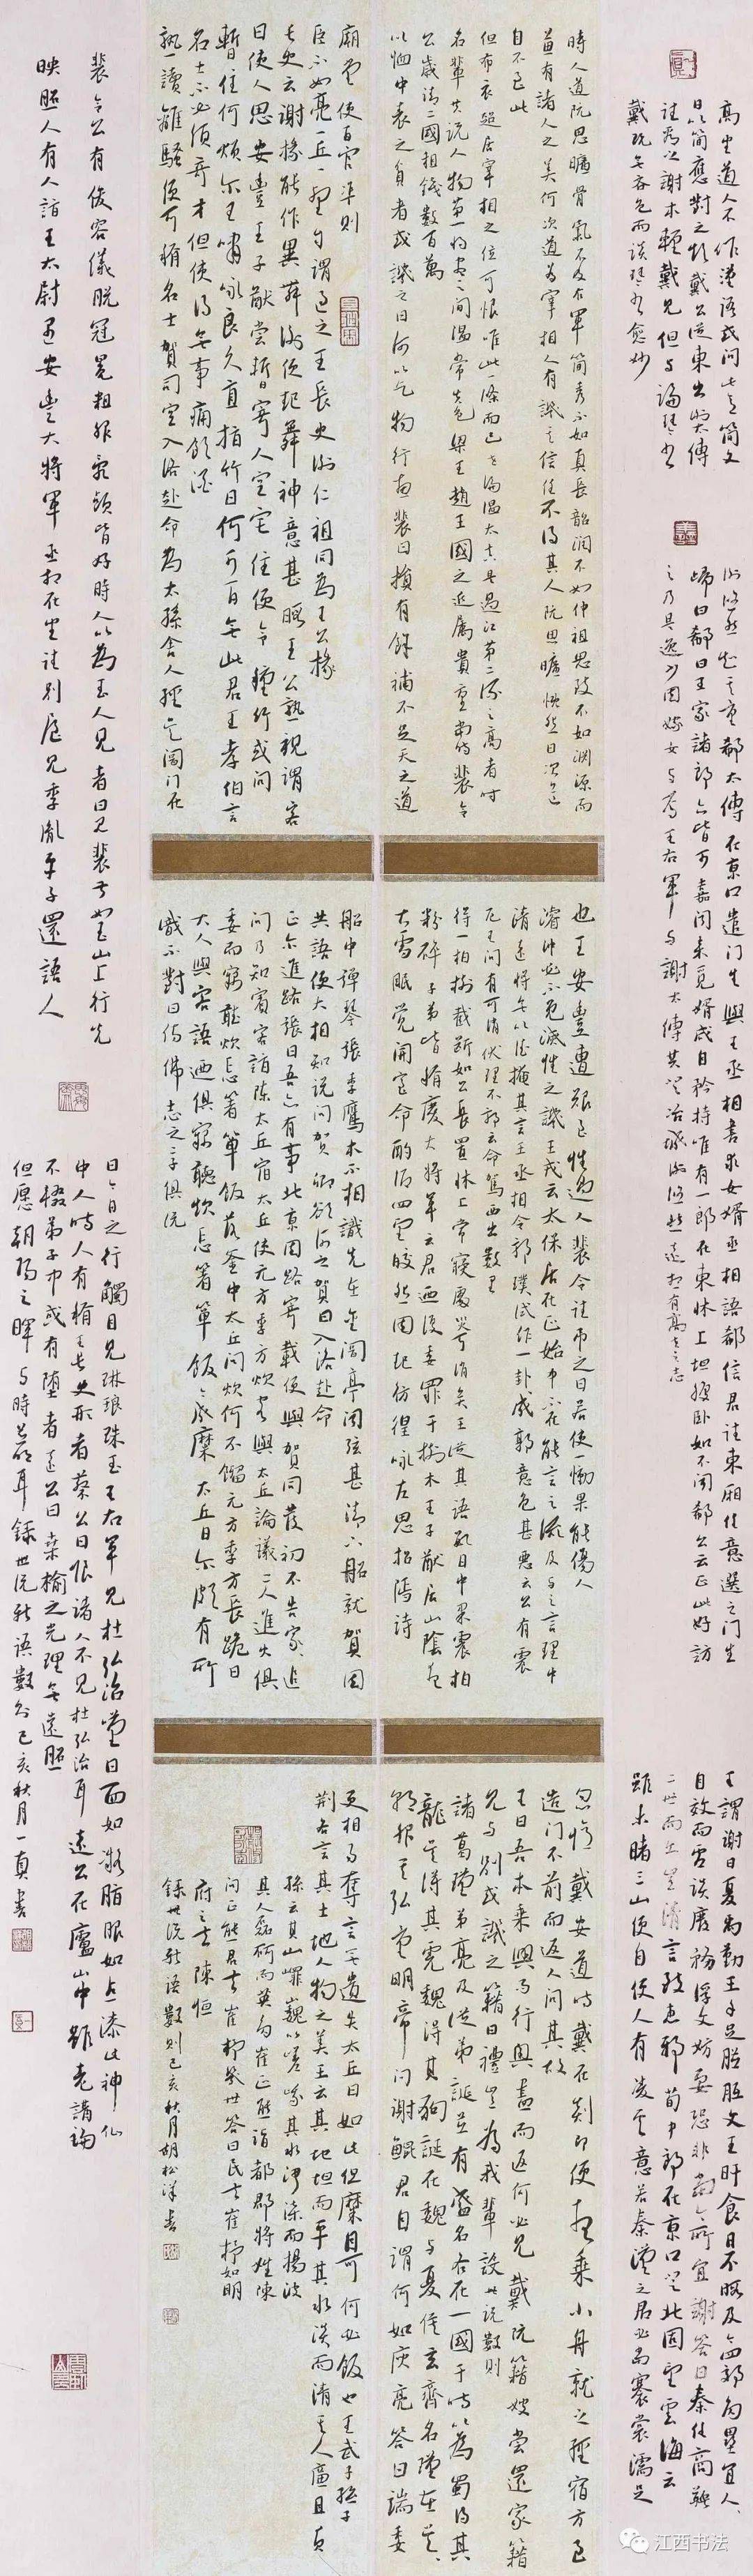 高坐道人不作漢語或問此意簡文
曰以簡應對之煩戴公從東出謝太傅
往看之謝本輕戴見但與論琴書
戴既無吝色而談琴書愈妙
郗太傅在京口遣門生與王丞相書求女婿丞相語郗信君往東廂任意選之門生
歸白郗曰王家諸郎亦皆可嘉聞來覓婿咸自矜持唯有一郎在東床上坦腹臥如不聞郗公云正此好訪
之乃是逸少因嫁女與焉王右軍與謝太傅共登冶城謝悠然遠想有高世之志
王謂謝曰夏禹勤王手足胼胝文王旰食日不暇給今四郊多壘宜人人
自效而虛談廢務浮文妨要恐非當今所宜謝答曰秦任商鞅
二世而亡豈清言致患邪荀中郎在京口登北固望海云
雖未睹三山便自使人有凌雲意若秦漢之君必當褰裳濡足
時人道阮思曠骨氣不及右軍簡秀不如真長韶潤不如仲祖思致不如淵源而
兼有諸人之美何次道為宰相人有譏其信任不得其人阮思曠慨然曰次道
自不至此
但布衣超居宰相之位可恨唯此一條而已世論溫太真是過江第二流之高者時
名輩共說人物第一將盡之間溫常失色梁王趙王國之近屬貴重當時裴令
公歲請二國租錢數百萬
以恤中表之貧者或譏之曰何以乞物行惠裴曰損有餘補不足天之道
也王安豐遭艱至性過人裴令往弔之曰若使一慟果能傷人
濬沖必不免滅性之譏王戎云太保居在正始中不在能言之流及與之言理中
清遠將無以德掩其言王丞相令郭璞試作一卦卦成郭意色甚惡云公有震
厄王問有可消伏理不郭云命駕西出數里
得一柏樹截斷如公長置床上常寢處災可消矣王從其語數日中果震柏
粉碎子弟皆稱慶大將軍云君乃復委罪于樹木王子猷居山陰夜
大雪眠覺開室命酌酒四望皎然因起彷徨詠左思招隱詩
忽憶戴安道時戴在剡即便夜乘小舟就之經宿方至
造門不前而返人問其故
王曰吾本乘興而行興盡而返何必見戴阮籍嫂嘗還家籍
見與別或譏之籍曰禮豈為我輩設也世說數則
諸葛瑾弟亮及從弟誕並有盛名各在一國于時以為蜀得其
龍吳得其虎魏得其狗誕在魏與夏侯玄齊名瑾在吳
吳朝服其弘量明帝問謝鯤君自謂何如庾亮答曰端委
廟堂使百官準則
臣不如亮一丘一壑自謂過之王長史謝仁祖同為王公掾
長史云謝掾能作異舞謝便起舞神意甚暇王公熟視謂客
曰使人思安豐王子猷嘗暫寄人空宅住便令種竹或問
暫住何煩爾王嘯詠良久直指竹曰何可一日無此君王孝伯言
名士不必須奇才但使得無事痛飲酒
熟讀離騷便可稱名士賀司空入洛赴命為太孫舍人經吳閶門在
船中彈琴張季鷹本不相識先在金閶亭聞弦甚清下船就賀因
共語便大相知說問賀卿欲何之賀曰入洛赴命
正爾進路張曰吾亦有事北京因路寄載便與賀同發初不告家追
問乃知賓客詣陳太丘宿太丘使元方季方炊客與太丘論議二人進火俱
委而竊聽炊忘著箄飯落釜中太丘問炊何不餾元方季方長跪曰
大人與客語乃俱竊聽炊忘著箄飯今成糜太丘曰爾頗有所
識不對曰仿佛志之二子俱說
更相易奪言無遺失太丘曰如此但糜自可何必飯也王武子孫子
荊各言其土地人物之美王云其地坦而平其水淡而清其人廉且貞
孫云其山嶵巍以嵯峨其水㳌渫而揚波
其人磊砢而英多崔正熊詣都郡將姓陳
問正熊君去崔杼幾世答曰民去崔杼如明
府之去陳恒
錄世說新語數則己亥秋月胡松洋書
裴令公有俊容儀脫冠冕粗服亂頭皆好時人以為玉人見者曰見裴叔則如玉山上行光
映照人有人詣王太尉遇安豐大將軍丞相在坐往別屋見季胤平子還語人
曰今日之行觸目見琳琅珠玉王右軍見杜弘治歎曰面如凝脂眼如點漆此神仙
中人時人有稱王長史形者蔡公曰恨諸人不見杜弘治耳遠公在廬山中雖老講論
不輟弟子中或有墮者遠公曰桑榆之光理無遠照
但愿朝陽之暉與時並明耳錄世說新語數則己亥秋月一真書
江西书法